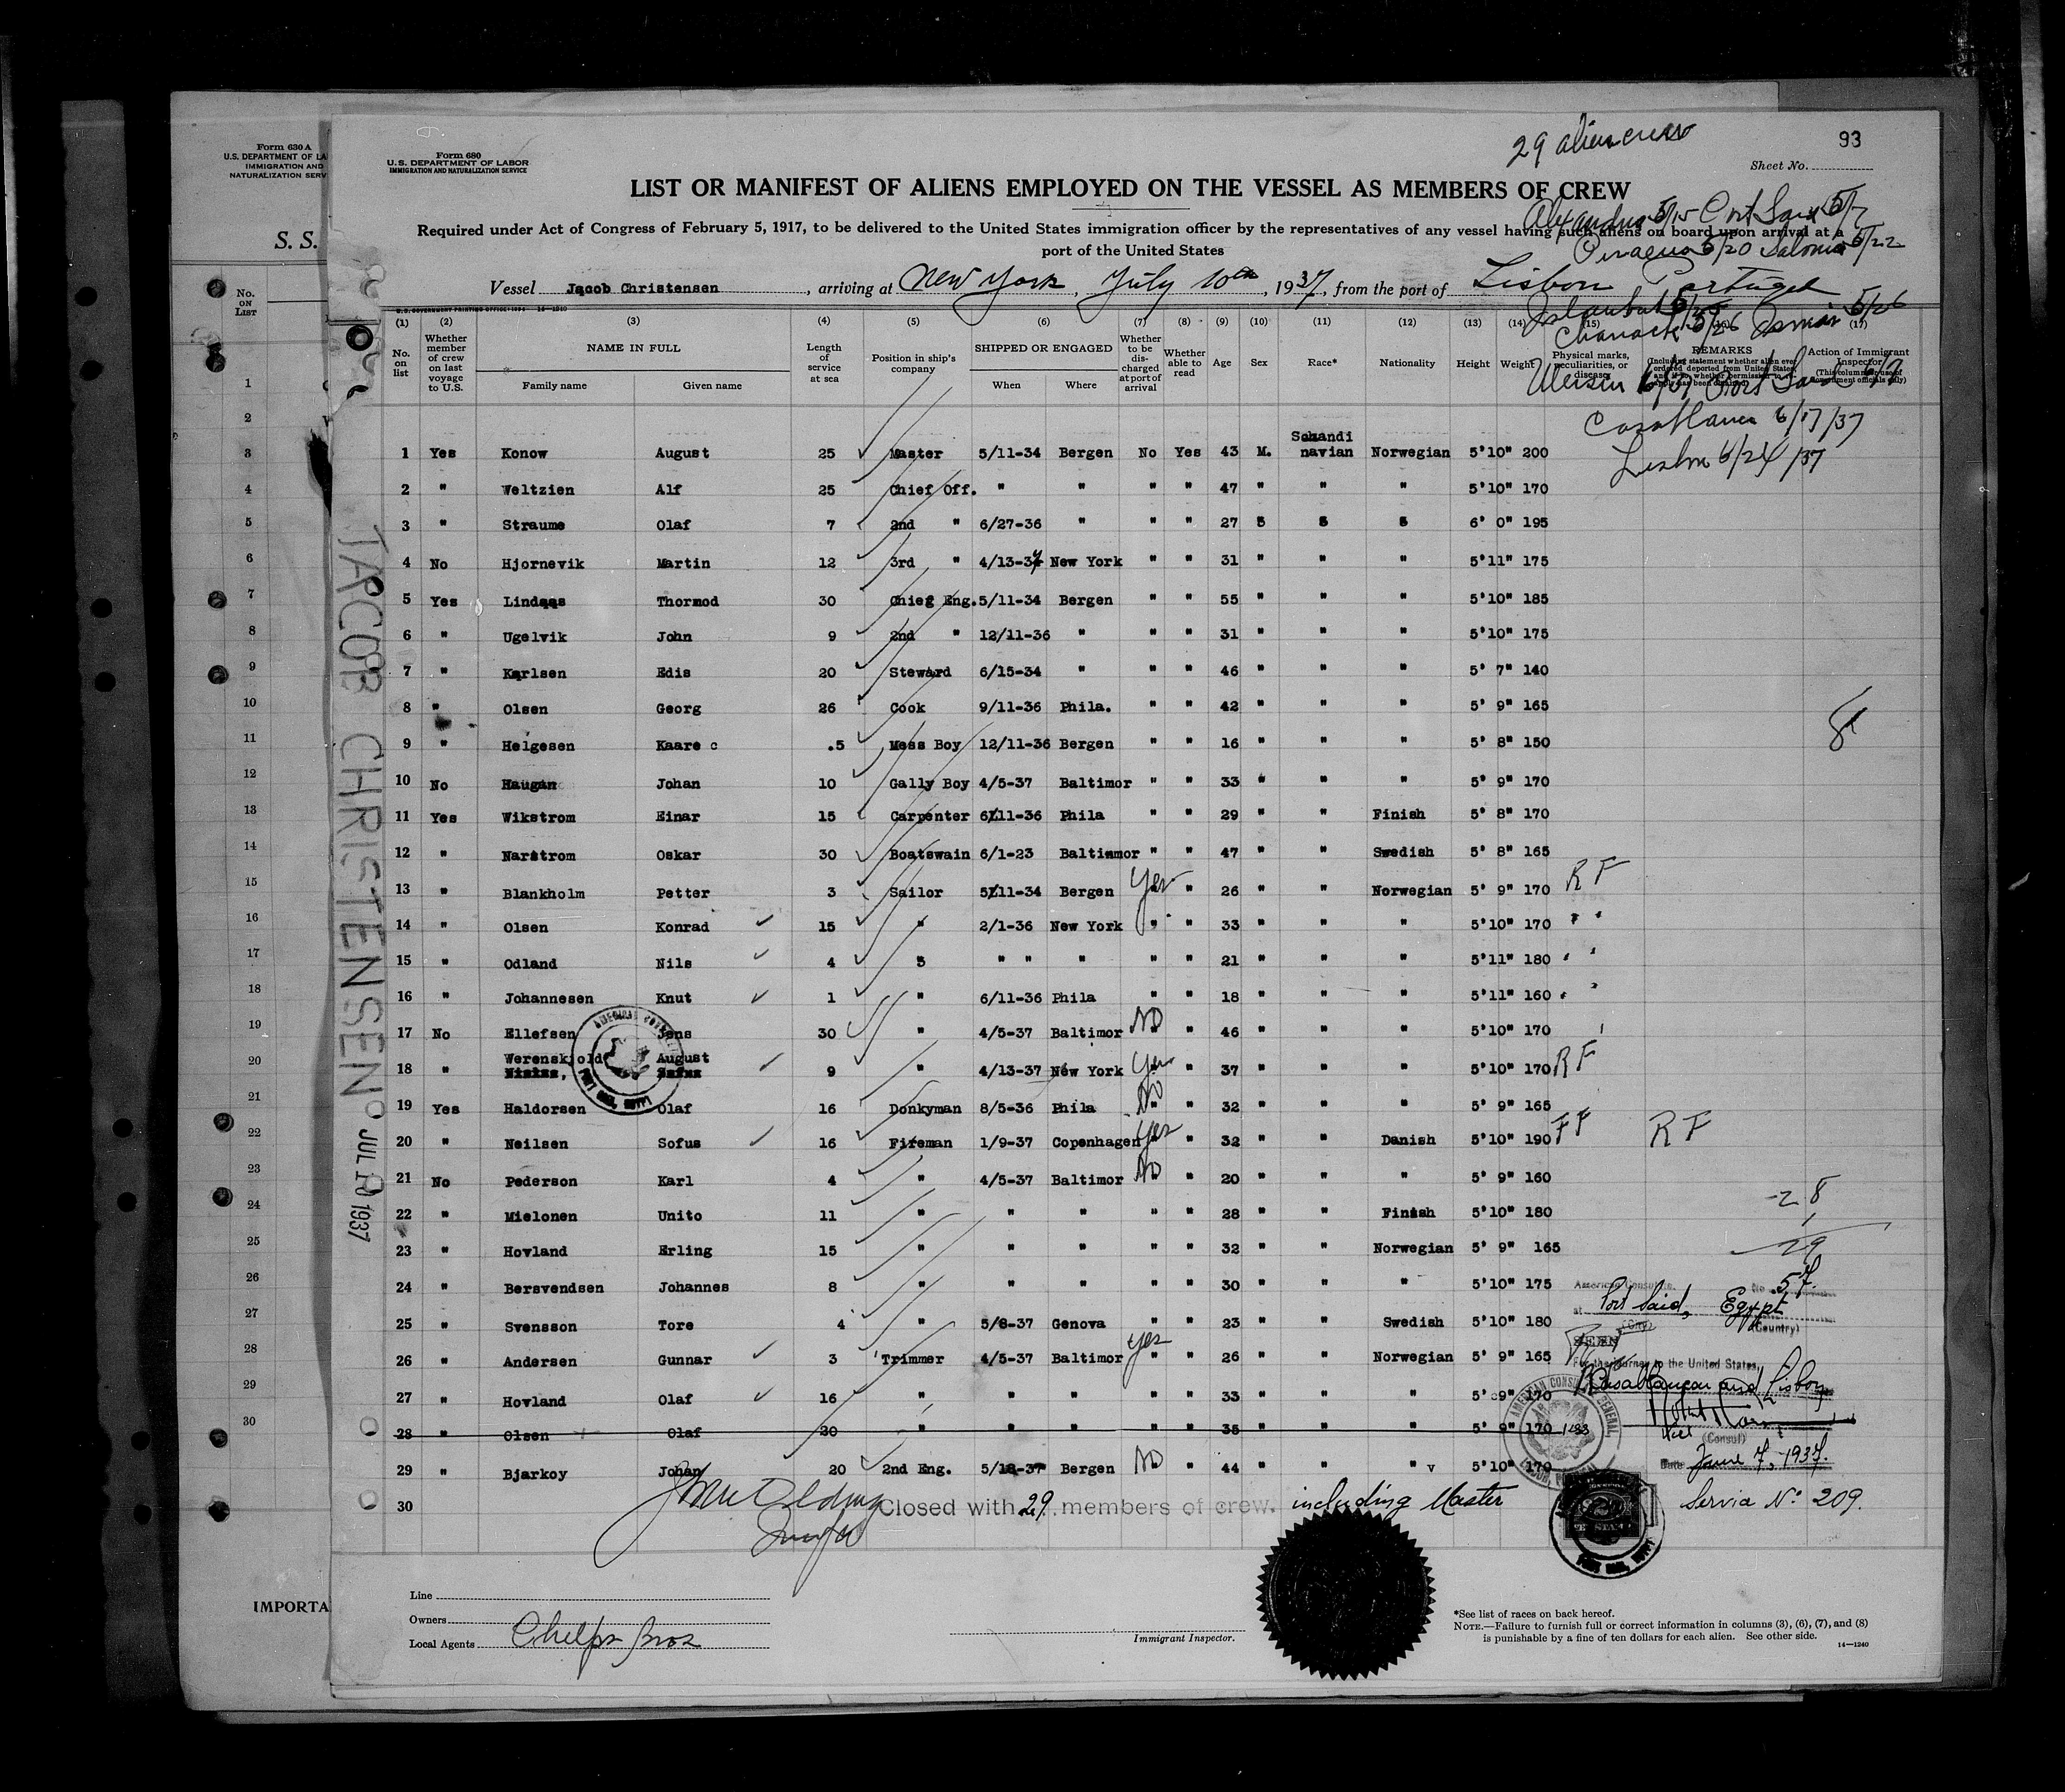 Form 630 A
U.S. DEPARTMENT OF LA
IMMIGRATION AND
NATURALIZATION SERV
S. S.
No.
ON
LIST
1
2
3
4
5
6
7
8
9
10
11
12
13
14
15
16
17
18
19
20
21
22
23
24
25
26
27
28
29
30
IMPORTA
Form 680
U.S. DEPARTMENT OF LABOR
IMMIGRATION AND NATURALIZATION SERVICE
29 alien crew
93
Sheet No.
LIST OR MANIFEST OF ALIENS EMPLOYED ON THE VESSEL AS MEMBERS OF CREW
Required under Act of Congress of February 5, 1917, to be delivered to the United States immigration officer by the representatives of any vessel having such aliens on board upon arrival at a
port of the United States
Alexandria 5/15 Port Said 5/7
Piraeus 5/20 Salonica 5/22
Vessel Jacob Christensen, arriving at New York, July 10th, 1937, from the port of Lisbon Portugal
Istanbul
Chanack 5/26 Ismir 5/26
Mersin Port Said
Casablanca 6/17/37
Lisbon 6/24/37
(1) (2) (3) (4) (5) (6) (7) (8) (9) (10) (11) (12) (13) (14) (15) (17)
No. on list
Whether member of crew on last voyage to U.S.
NAME IN FULL
Family name Given name
Length of service at sea
Position in ship's company
SHIPPED OR ENGAGED
When Where
Whether to be discharged at port of arrival
Whether able to read
Age Sex Race* Nationality Height Weight
Physical marks, peculiarities, or disease
REMARKS
Action of Immigrant Inspector
1 Yes Konow August 25 Master 5/11-34 Bergen No Yes 43 M. Scandi navian Norwegian 5'10" 200
2 " Weltzien Alf 25 Chief Off. " " " " 47 " " " 5'10" 170
3 " Straume Olaf 7 2nd " 6/27-36 " " " 27 5 5 5 6' 0" 195
4 No Hjornevik Martin 12 3rd " 4/13-37 New York " " 31 " " " 5'11" 175
5 Yes Lindaas Thormod 30 Chief Eng. 5/11-34 Bergen " " 55 " " " 5'10" 185
6 " Ugelvik John 9 2nd " 12/11-36 " " " 31 " " " 5'10" 175
7 " Karlsen Edis 20 Steward 6/15-34 " " " 46 " " " 5' 7" 140
8 " Olsen Georg 26 Cook 9/11-36 Phila. " " 42 " " " 5' 9" 165
9 " Helgesen Kaare c .5 Mess Boy 12/11-36 Bergen " " 16 " " " 5' 8" 150
10 No Haugan Johan 10 Gally Boy 4/5-37 Baltimor " " 33 " " " 5' 9" 170
11 Yes Wikstrom Einar 15 Carpenter 6/11-36 Phila " " 29 " " Finish 5' 8" 170
12 " Narstrom Oskar 30 Boatswain 6/1-23 Baltimmor " " 47 " " Swedish 5' 8" 165
13 " Blankholm Petter 3 Sailor 5/11-34 Bergen Yes " 26 " " Norwegian 5' 9" 170 R F
14 " Olsen Konrad 15 " 2/1-36 New York " " 33 " " " 5'10" 170 " "
15 " Odland Nils 4 5 " " " " " 21 " " " 5'11" 180 " "
16 " Johannesen Knut 1 " 6/11-36 Phila " " 18 " " " 5'11" 160 " "
17 No Ellefsen Jens 30 " 4/5-37 Baltimor No " 46 " " " 5'10" 170
18 " Werenskjold August 9 " 4/13-37 New York Yes " 37 " " " 5'10" 170 R F
19 Yes Haldorsen Olaf 16 Donkyman 8/5-36 Phila No " 32 " " " 5' 9" 165
20 " Neilsen Sofus 16 Fireman 1/9-37 Copenhagen Yes " 32 " " Danish 5'10" 190 F F R F
21 No Pederson Karl 4 " 4/5-37 Baltimor No " 20 " " " 5' 9" 160
22 " Mielonen Unito 11 " " " " " 28 " " Finish 5'10" 180
23 " Hovland Erling 15 " " " " " 32 " " Norwegian 5' 9" 165
24 " Bersvendsen Johannes 8 " " " " " 30 " " " 5'10" 175
25 " Svensson Tore 4 " 5/8-37 Genova " " 23 " " Swedish 5'10" 180
26 " Andersen Gunnar 3 Trimmer 4/5-37 Baltimor Yes " 26 " " Norwegian 5' 9" 165
27 " Hovland Olaf 16 " " " " " 33 " " " 5' 9" 170
28 " Olsen Olaf 30 " " " " " 35 " " " 5' 9" 170
29 " Bjarkoy Johan 20 2nd Eng. 5/18-37 Bergen No " 44 " " " v 5'10" 170
30
Closed with 29 members of crew. including Master
28
1
29
American Consulate No 57.
at Port Said, Egypt
(City) (Country)
SEEN
For the journey to the United States
Casablanca and Lisbon
(Consul)
Date June 7, 1937.
Servia Nº 209.
AMERICAN CONSULATE GENERAL
JACOB CHRISTENSEN
JUL 10 1937
Line
Owners
Local Agents Phelps Bros
Immigrant Inspector.
*See list of races on back hereof.
NOTE.—Failure to furnish full or correct information in columns (3), (6), (7), and (8)
is punishable by a fine of ten dollars for each alien. See other side.
14—1240